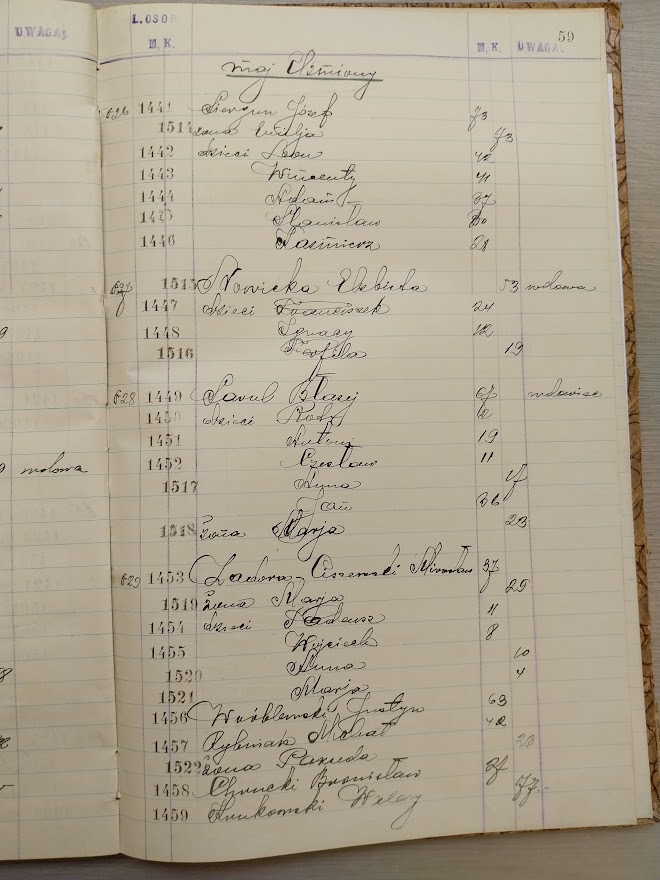 UWAGA!
L. OSOB
M. K.
M. K. UWAGA!
59
maj Olźmiony
626 1441 Piergun Józef 73
1514 żona Emilja 73
1442 dzieci Leon 42
1443 Wincenty 41
1444 Adam 37
1445 Stanisław 30
1446 Kaźmierz 28
627 1515 Nowicka Elżbieta 53 wdowa
1447 dzieci Franciszek 24
1448 Ignacy 12
1516 Teofila 19
628 1449 Paweł Błazej 67 wdowiec
1450 dzieci
1451 Antoni 19
1452 Czesław 11
1517 Anna 17
Jan 36
1518 żona Marja 23
wdowa
629 1453 Zadora-Ciszewski Mirosław 37
1519 żona Marja 29
1454 dzieci Tadeusz 11
1455 Wojciech 8
1520 Anna 10
1521 Marja 4
1456 Wróblewski Justyn 63
1457 Rybniak 42
1522 żona 20
1458 Chrucki Bronisław 27
1459 Krukowski Walery 77